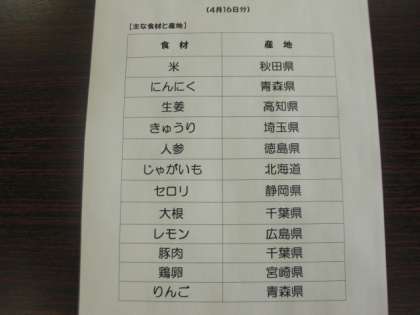 (4月16日分)
【主な食材と産地】
食材 産地
米 秋田県
にんにく 青森県
生姜 高知県
きゅうり 埼玉県
人参 徳島県
じゃがいも 北海道
セロリ 静岡県
大根 千葉県
レモン 広島県
豚肉 千葉県
鶏卵 宮崎県
りんご 青森県